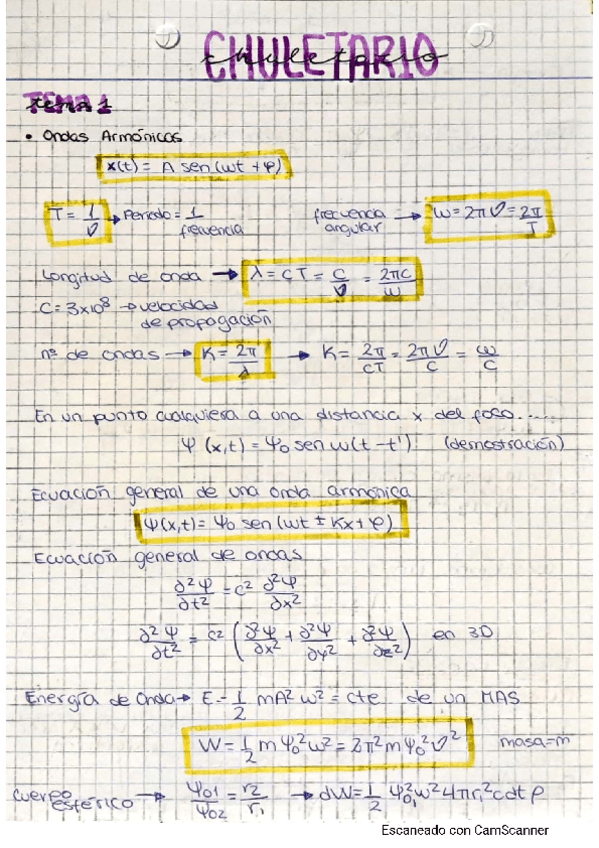 CHULETARIO
chuletario
TEMA 1
tema 1
• Ondas Armónicas
x(t) = A sen(wt + φ)
T = 1/ν → Periodo = 1/frecuencia frecuencia angular → W = 2πν = 2π/T
Longitud de onda → λ = cT = c/ν = 2πc/w
C = 3x10⁸ → velocidad de propagación
nº de ondas → K = 2π/λ → K = 2π/cT = 2πν/c = w/c
En un punto cualquiera a una distancia x del foco.....
Ψ (x,t) = Ψ₀ sen w(t - t'). (demostración)
Ecuación general de una onda armónica
Ψ(x,t) = Ψ₀ sen (wt ± Kx + φ)
Ecuación general de ondas
∂²Ψ/∂t² = c² ∂²Ψ/∂x²
∂²Ψ/∂t² = c² (∂²Ψ/∂x² + ∂²Ψ/∂y² + ∂²Ψ/∂z²) en 3D
Energía de Onda → E = 1/2 mA²w² = cte de un MAS
W = 1/2 m Ψ₀² w² = 2π² m Ψ₀² ν² masa = m
Cuerpo esférico → Ψ₀₁/Ψ₀₂ = r₂/r₁ → dW = 1/2 Ψ₀₁² w² 4πr₁² c dt ρ
Escaneado con CamScanner